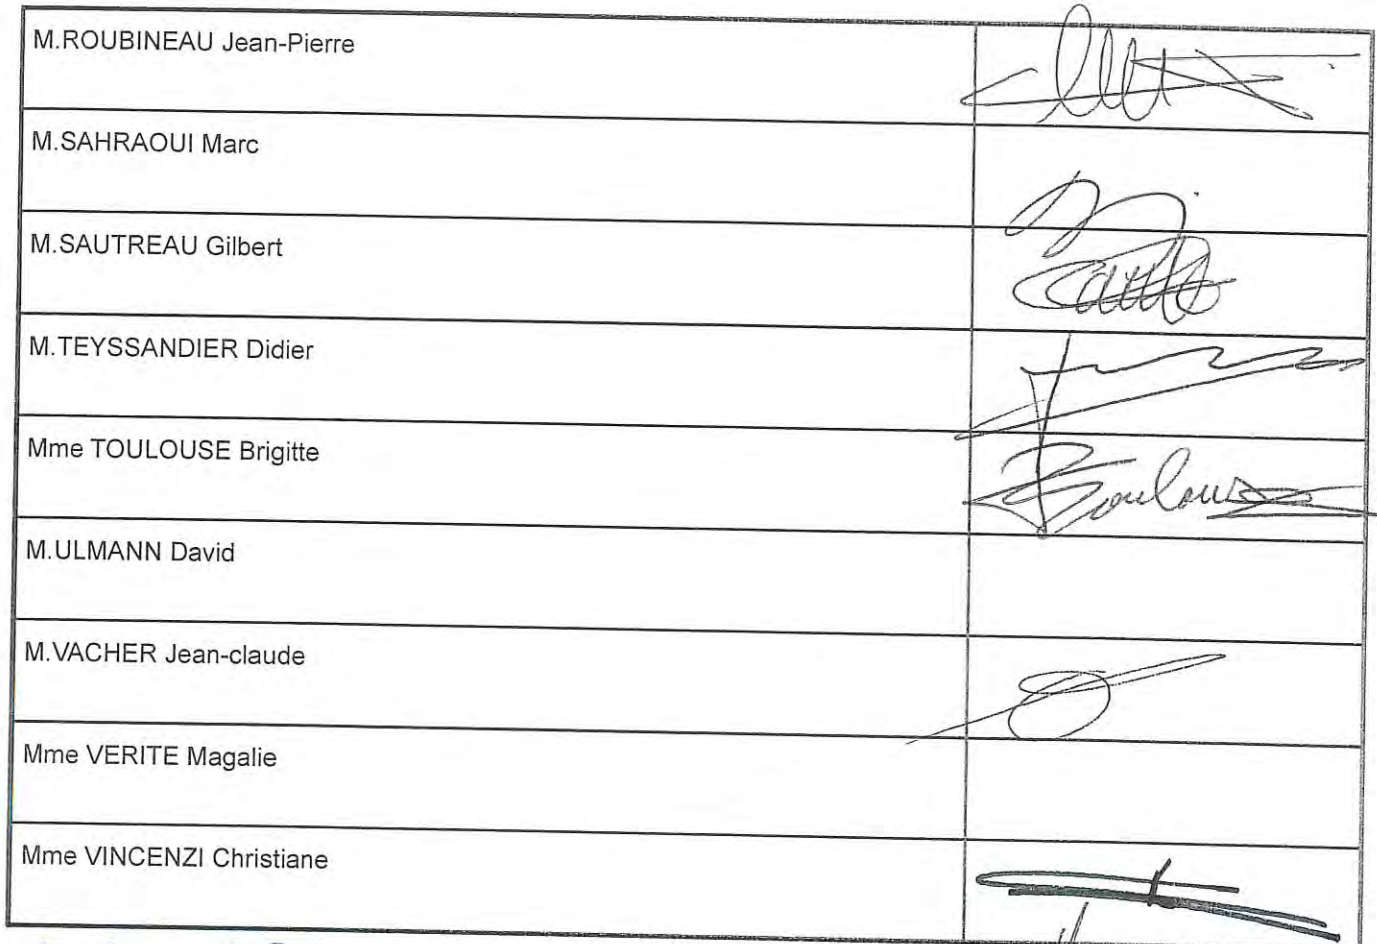 M.ROUBINEAU Jean-Pierre
M.SAHRAOUI Marc
M.SAUTREAU Gilbert
M.TEYSSANDIER Didier
Mme TOULOUSE Brigitte
M.ULMANN David
M.VACHER Jean-claude
Mme VERITE Magalie
Mme VINCENZI Christiane